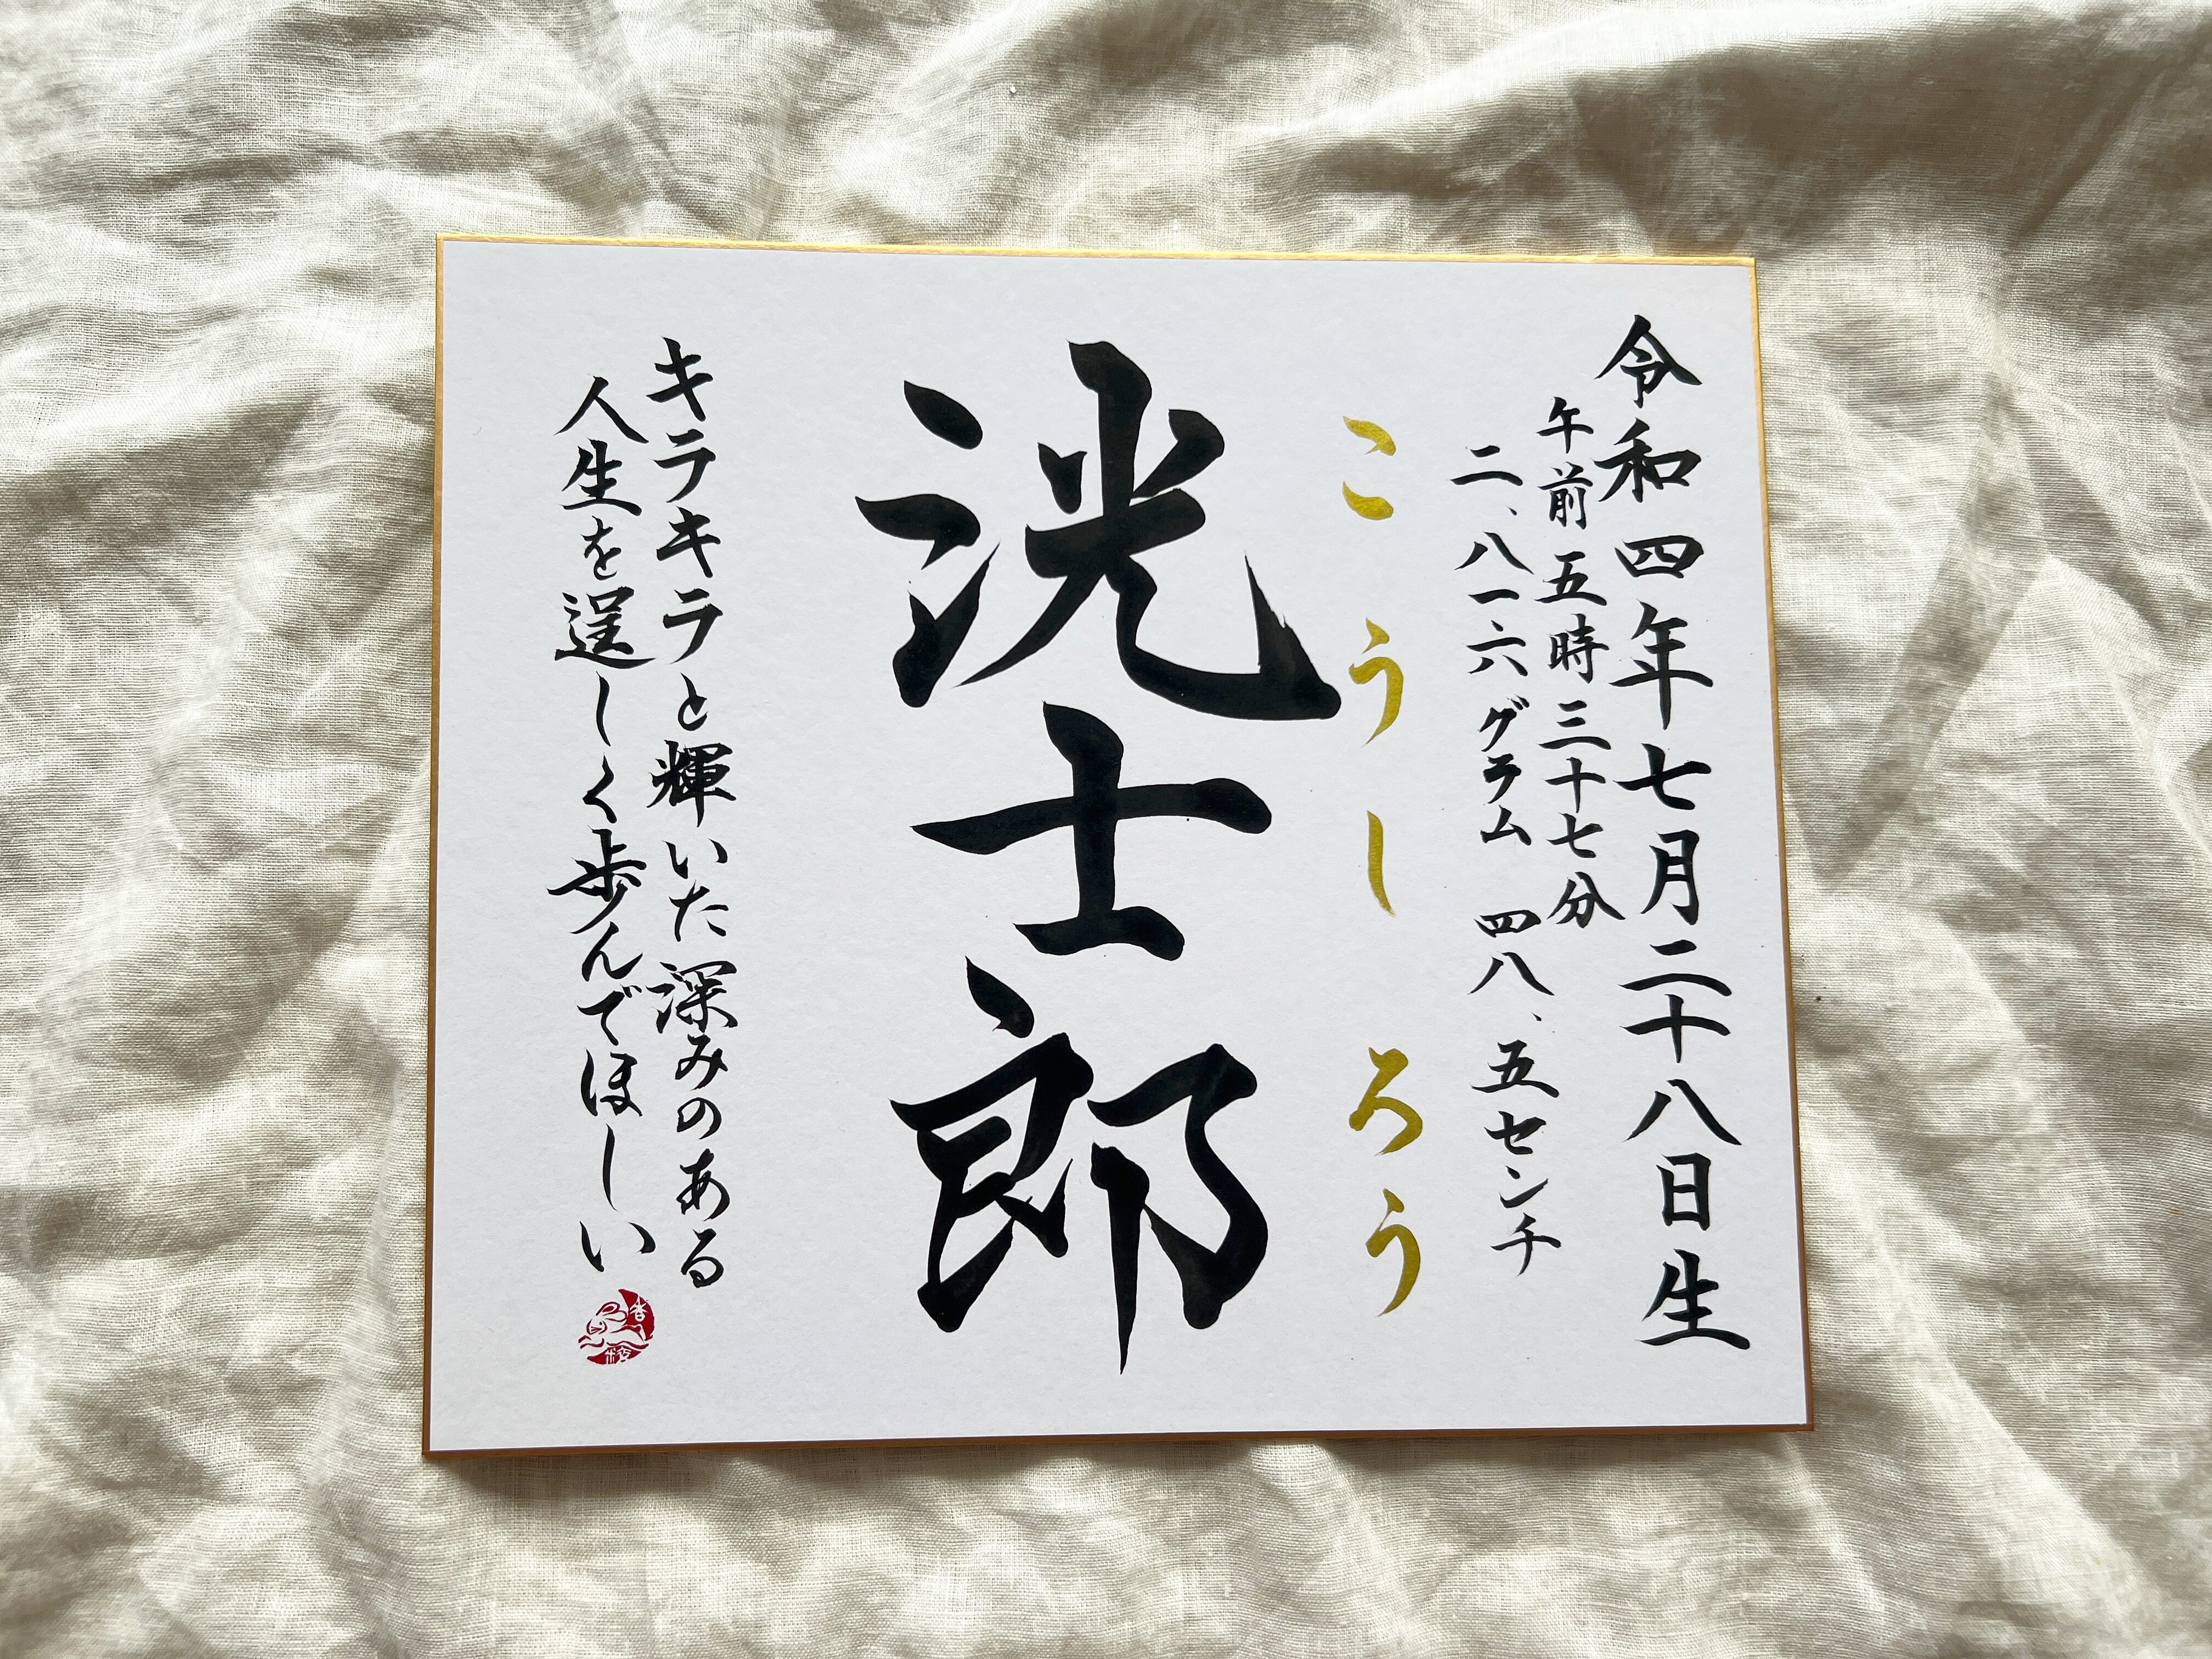 令和四年七月二十八日生
午前五時三十七分
二、八一六グラム 四八、五センチ
こうしろう
洸士郎
キラキラと輝いた深みのある
人生を逞しく歩んでほしい